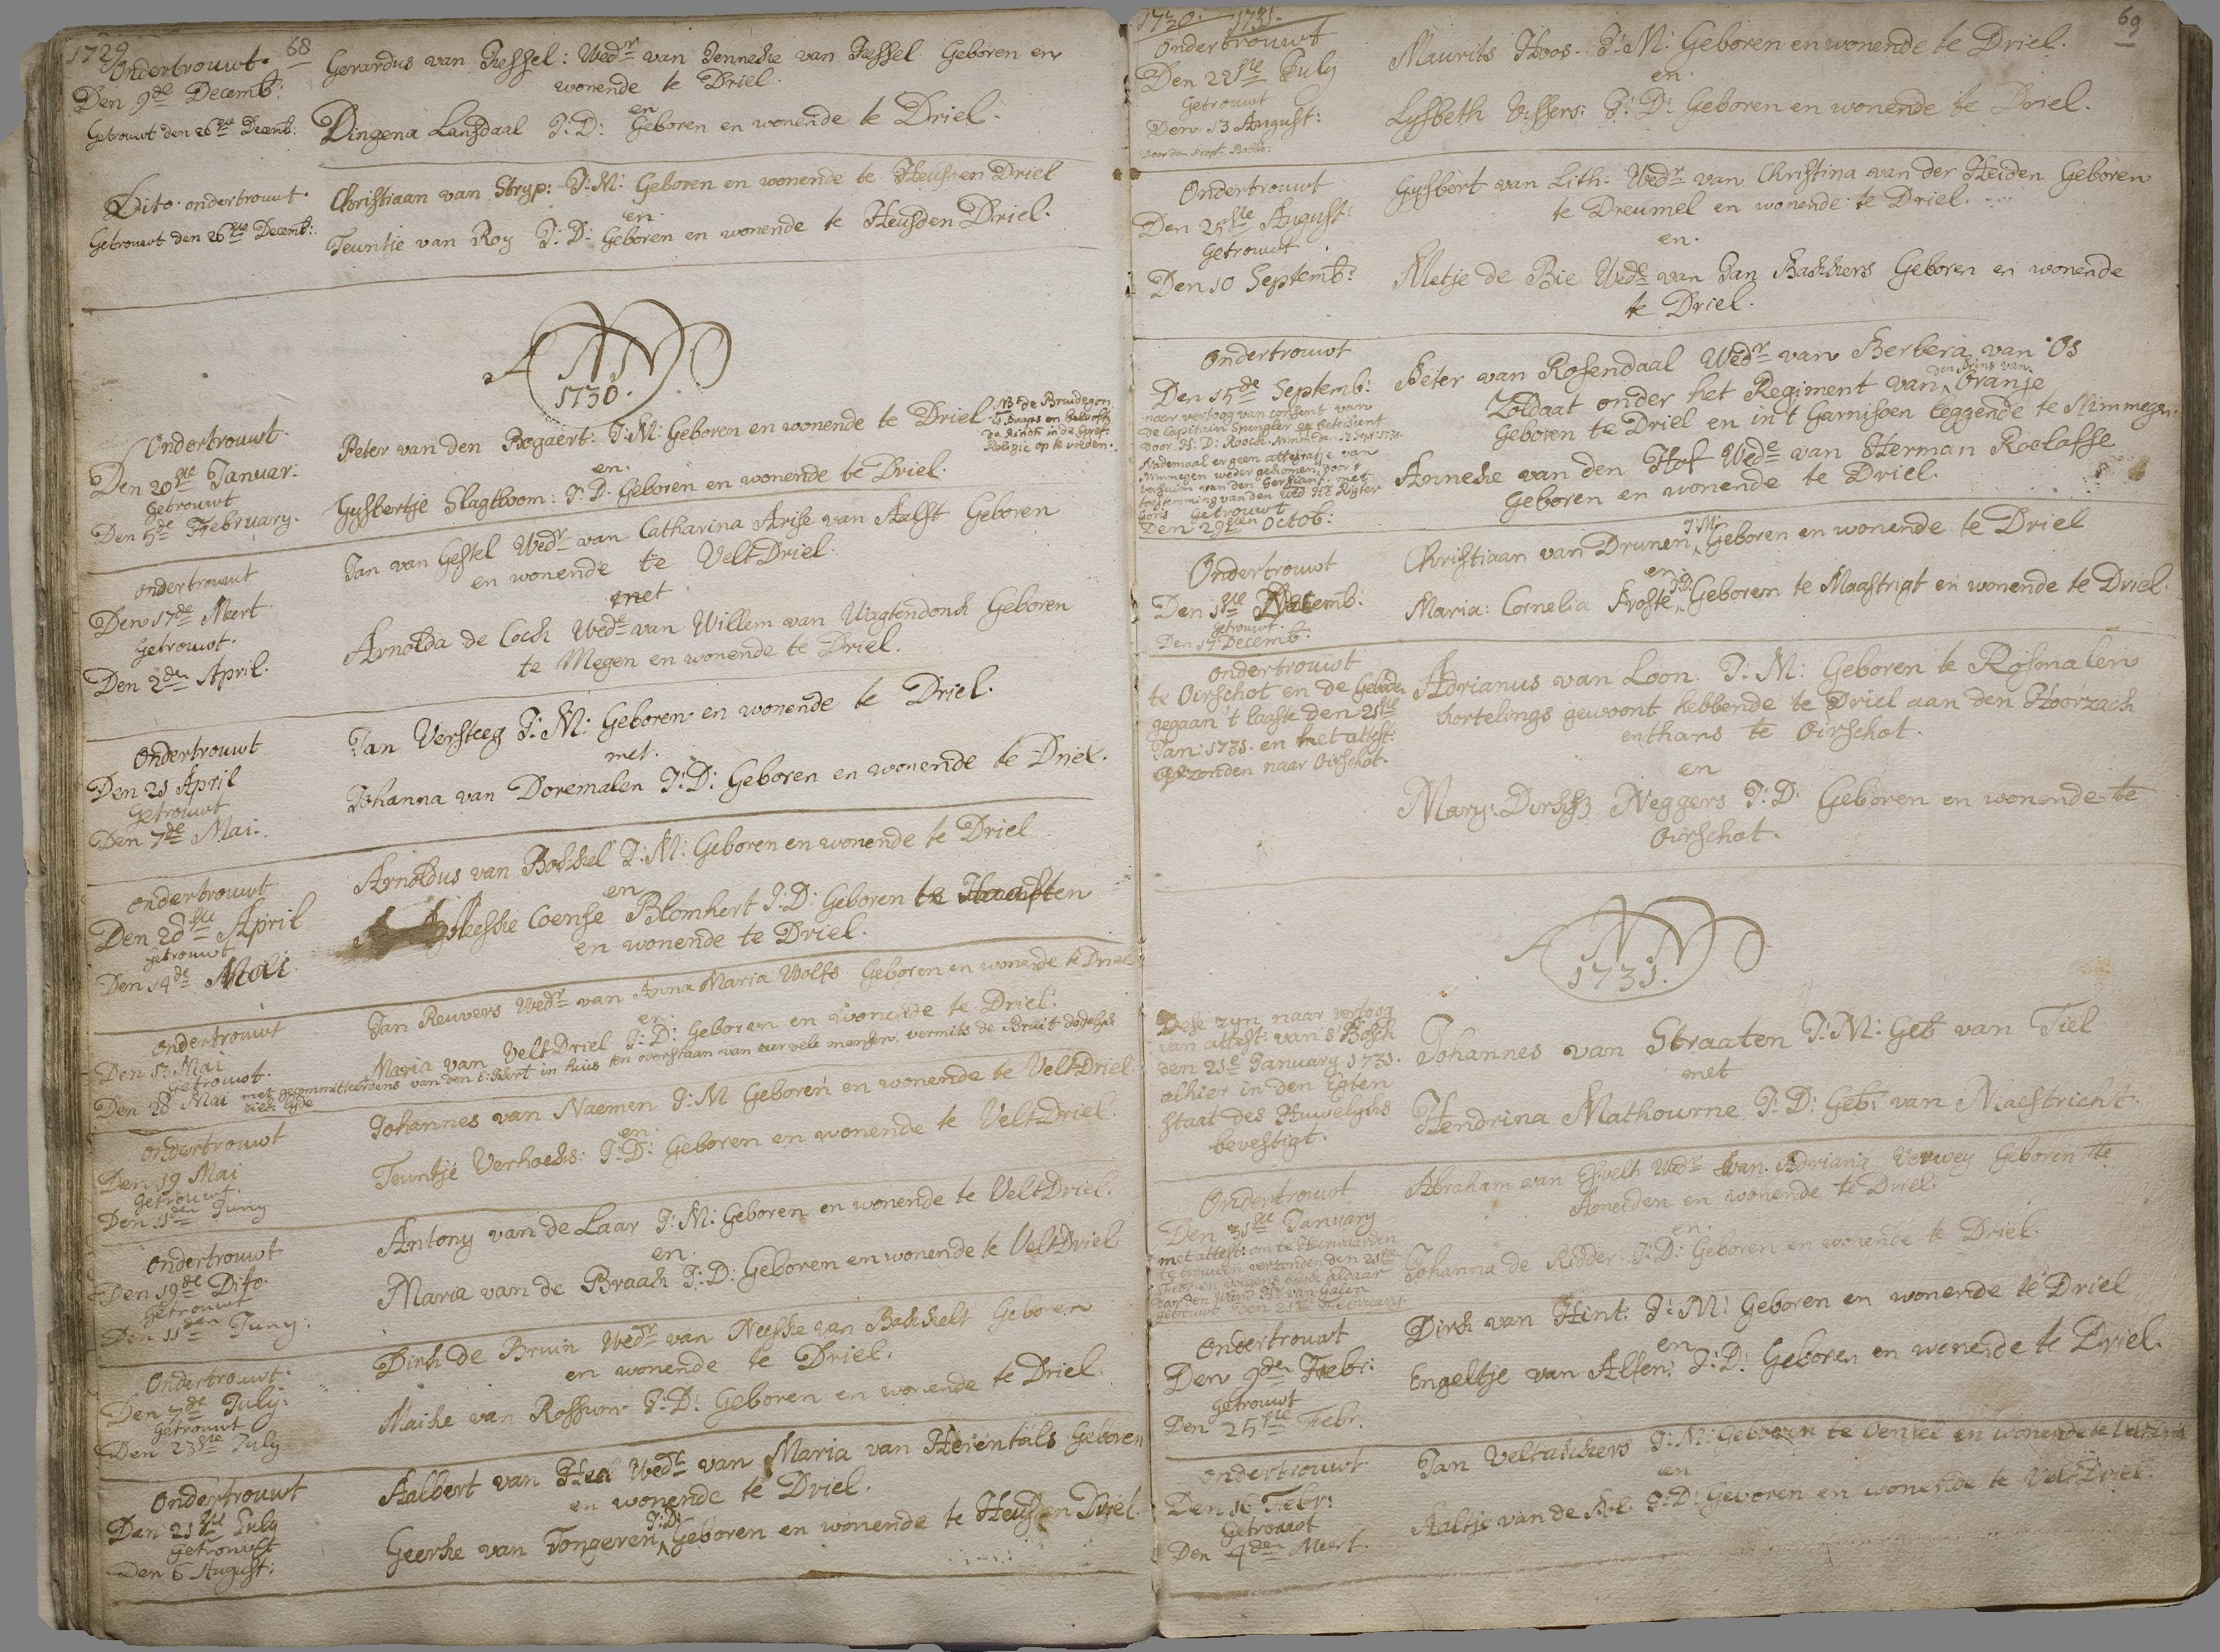 1729
68
Ondertrouwt.
Den 9de Decemb:
Getrouwt den 26ste Decemb:
Gerardus van Hessel: Wedr van Jenneke van Hessel Geboren en
wonende te Driel.
en
Dingena Lansdaal J:D: Geboren en wonende te Driel.
Dito ondertrouwt.
Getrouwt den 26ste Decemb:
Christiaan van Stryp: J:M: Geboren en wonende te Heusden Driel
en.
Teuntje van Roy J:D: Geboren en wonende te Heusden Driel.
ANNO
1730.
Ondertrouwt.
Den 20ste Januar:
Getrouwt
Den 5de February.
Peter van den Bogaert: J:M: Geboren en wonende te Driel
NB de Bruidegom
is Paaps en belooft
de Kindr in de Geref.
Religie op te voeden.
en.
Gysbertje Slagtboom: J:D: Geboren en wonende te Driel.
Ondertrouwt
Den 17de Mært
Getrouwt.
Den 2den April.
Jan van Gestel Wedr van Catharina Arise van Aalst Geboren
en wonende te VeltDriel.
met
Arnolda de Cock Wede van Willem van Wagtendonk Geboren
te Megen en wonende te Driel.
Ondertrouwt
Den 21 April
Getrouwt
Den 7de Mai.
Jan Versteeg J:M: Geboren en wonende te Driel.
met.
Johanna van Doremalen J:D: Geboren en wonende te Driel.
Ondertrouwt
Den 28ste April
getrouwt
Den 14de Mai
Arnoldus van Bokkel J:M: Geboren en wonende te Driel
en
Coense Blomkert J:D: Geboren te Haaften
en wonende te Driel.
Ondertrouwt
Den 13 Mai
Getrouwt.
Den 28 Mai met gecommitteerdens van den E: Kert in huis en overstaan van zeer vele mensen, vermits de Bruit dodelyk
ziek lyde
Jan Reuvers Wedr van Anna Maria Wolfs Geboren en wonende te Driel
en.
Maria van VeltDriel J:D: Geboren en wonende te Driel.
Ondertrouwt
Den 19 Mai
Getrouwt.
Den 11den Juny
Johannes van Naemen J:M Geboren en wonende te VeltDriel
en.
Teuntje Verhoeks: J:D: Geboren en wonende te VeltDriel.
Ondertrouwt
Den 19de Dito.
Getrouwt
Den 11den Juny.
Antony van de Laar J:M: Geboren en wonende te VeltDriel.
en.
Maria van de Braack J:D: Geboren en wonende te VeltDriel
Ondertrouwt.
Den 7de July.
Getrouwt
Den 23ste July
Dirk de Bruin Wedr van Neeske van Bakkelt Geboren
en wonende te Driel.
Maike van Rossum J:D: Geboren en wonende te Driel
Ondertrouwt
Den 21ste July
Getrouwt
Den 6 August:
Aalbert van Wedr van Maria van Herentals Geboren
en wonende te Driel.
Geerke van Tongeren J:D: Geboren en wonende te Heusden Driel.
1730. 1731.
69
Ondertrouwt
Den 22ste July
Getrouwt
Den 13 August:
Maurits Hoos. J:M: Geboren en wonende te Driel.
en.
Lysbeth Vissers: J:D: Geboren en wonende te Driel.
Ondertrouwt
Den 25ste August:
Getrouwt
Den 10 Septemb:
Gysbert van Lith: Wedr van Christina van der Heiden Geboren
te Dreumel en wonende te Driel.
en.
Metje de Bie Wede van Jan Bakkers Geboren en wonende
te Driel.
Ondertrouwt
Den 15de Septemb:
naar vertoog van consent van
de Capitain Spengler
Nademaal er geen attestatje van
Nimmegen weder gekomen, door 't
verzuim van den Sersiant: met
toestemming van den
Getrouwt
Den 29sten Octob:
Peter van Rosendaal Wedr van Berbera van Os
Zoldaat onder het Regiment van den Prins van Oranje
Geboren te Driel en in 't Garnisoen leggende te Nimmegen.
Anneke van den Hof Wede van Herman Roelasse
Geboren en wonende te Driel.
Ondertrouwt
Den 1ste Decemb:
Getrouwt.
Den 17 Decemb:
Christiaan van Drunen J:M: Geboren en wonende te Driel
en.
Maria: Cornelia Froste J:D: Geboren te Maastrigt en wonende te Driel.
Ondertrouwt
te Oirschot en de Geboden
gegaan 't laaste den 21ste
Jan: 1731. en met attest:
gezonden naar Oirschot.
Adrianus van Loon. J:M: Geboren te Rosmalen
kortelings gewoont hebbende te Driel aan den Hoorzack
en thans te Oirschot.
en
Mary: Dirksz Neggers J:D: Geboren en wonende te
Oirschot.
ANNO
1731.
Dese zyn naar vertoog
van attest: van s'Bosch
den 21e January 1731.
alhier in den Egten
staat des Huwelyks
bevestigt.
Johannes van Straaten J:M: Geb van Tiel
met
Hendrina Mathourne J:D: Geb: van Maestricht.
Ondertrouwt
Den 31ste January
met attest: om te Heerwaarden
te trouwen verzonden den 21ste
getrouwt den 21ste February.
Abraham van Eswelt Wedr van Adriana Verwey Geboren te
Ameiden en wonende te Driel.
en.
Johanna de Ridder J:D: Geboren en wonende te Driel.
Ondertrouwt
Den 9de Febr:
Getrouwt
Den 25ste Febr.
Dirk van Hint: J:M: Geboren en wonende te Driel
en
Engeltje van Alfen: J:D: Geboren en wonende te Driel.
Ondertrouwt
Den 16 Febr:
Getrouwt
Den 4den Meert.
Jan Veltakkers J:M: Geboren te en wonende te VeltDriel
en
Aaltje van de J:D: Geboren en wonende te VeltDriel.